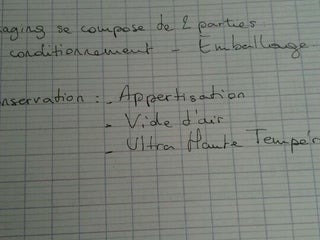 aging se compose de 2 parties
conditionnement - Emballage
nservation : - Appertisation
- Vide d'air
- Ultra Haute Tempér